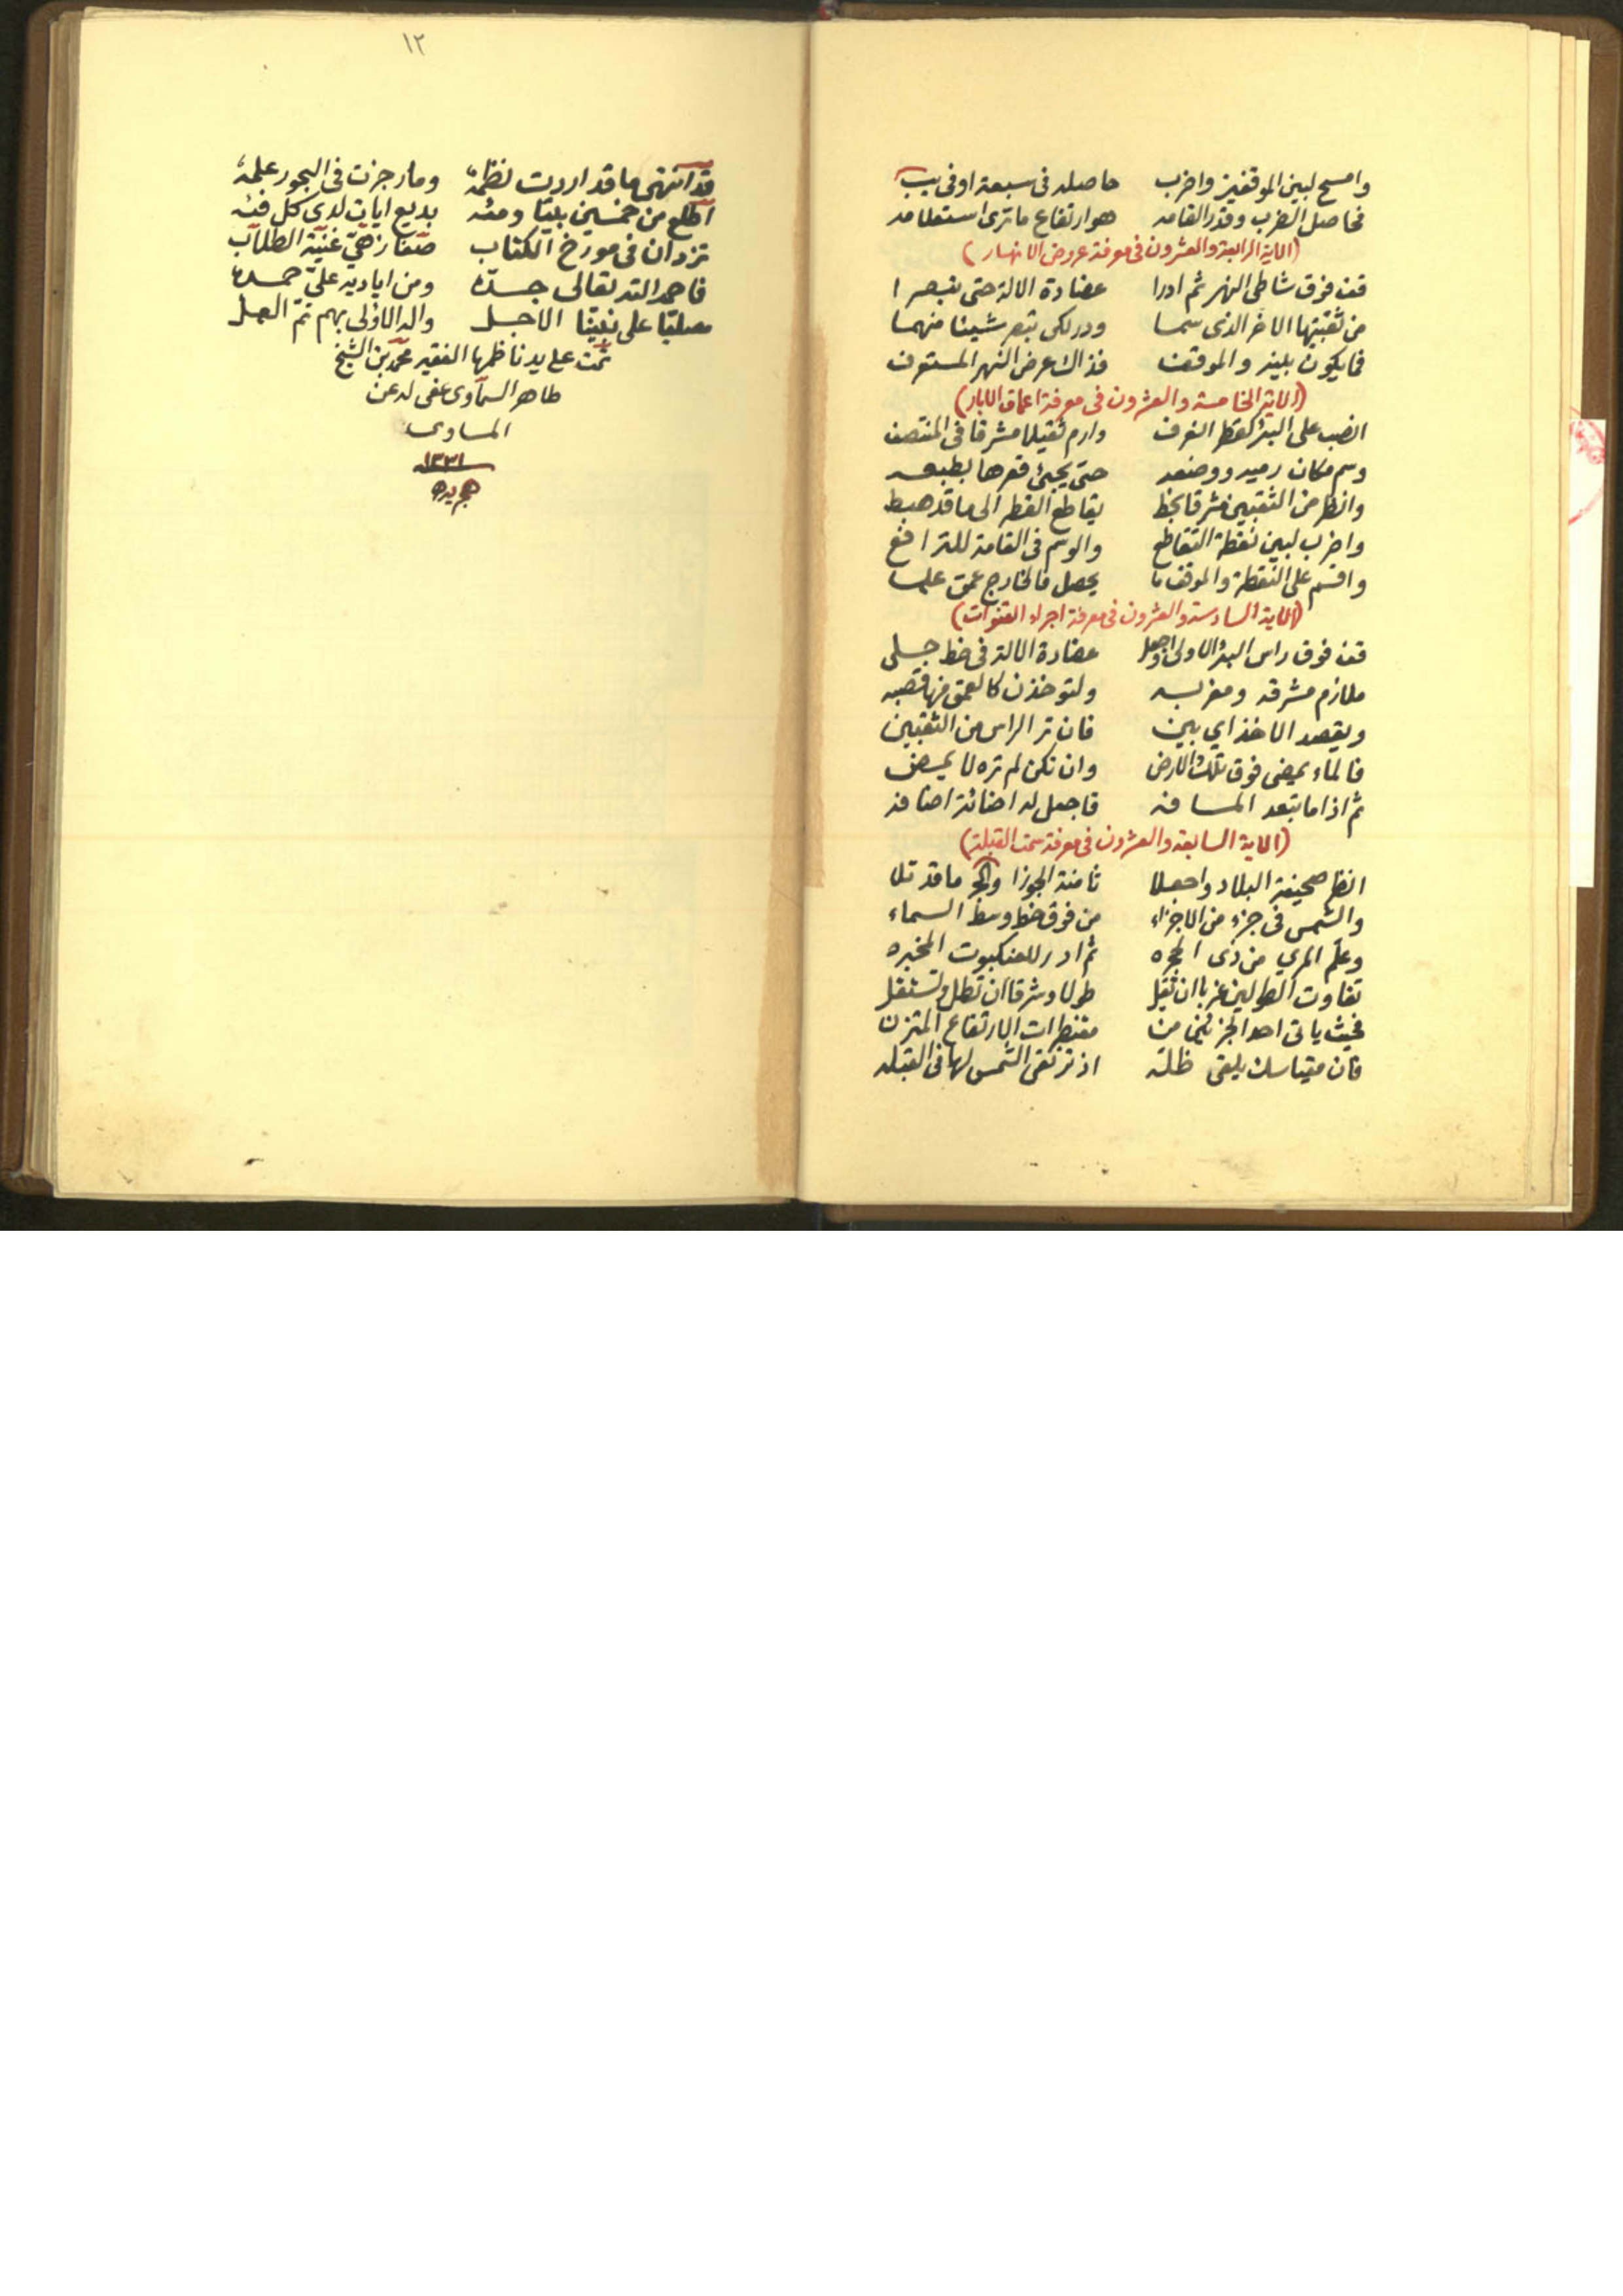 وامسح لبين الموقفين واضرب حاصله في سبعة او في يب
فحاصل الضرب وقدر القامه هو ارتفاع ما ترى استعلامه
(الاية الرابعة والعشرون في معرفة عروض الانهار)
قف فوق شاطي النهر ثم ادرا عضادة الالة حتى تبصرا
من ثقبتيها الاخر الذي سما ودر لكي تبصر شيئا منهما
فما يكون بينه والموقف فذاك عرض النهر المستعرف
(الاية الخامسة والعشرون في معرفة اعماق الابار)
انصب على البئر كقطر الغرف وارم ثقيلا مشرقا في المنتصف
وسم مكان رميه ووضعه حتى يجئ قعرها بطبعه
وانظر من الثقبين مشرقا بخط يقاطع القطر الى ما قد هبط
واضرب لبين نقطة التقاطع والوسم في القامة للترافع
واقسم على النقطة والموقف ما يحصل فالخارج عمق علما
(الاية السادسة والعشرون في معرفة اجراء القنوات)
قف فوق راس البئر الاولى واجعل عضادة الالة في خط جلي
ملازم مشرقه ومغربه ولتوخذن كالعمق منها قصبه
ويقصد الاخذ اي بين فان تر الراس من الثقبين
فالماء يمضي فوق تلك الارض وان تكن لم تره لا يمضي
ثم اذا ما تبعد المسافه فاجعل له اضائة اضافه
(الاية السابعة والعشرون في معرفة سمت القبلة)
انظر صحيفة البلاد واجعلا ثامنة الجوزا والج ما قد تلا
والشمس في جزء من الاجزاء من فوق خط وسط السماء
وعلم المري من ذى الحجره ثم ادر للعنكبوت المخبره
تفاوت الطولين غربا ان تقل طولا وشرقا ان تطل وتستقل
فحيث ياتي احد الجزئين من مقنطرات الارتفاع المتزن
فان مقياسك يلقي ظله اذ ترتقي الشمس لها في القبله
١٢
قد انتهى ما قد اردت نظمه وما رجزت في البحور علمه
اطلع من خمسين بيتا ومئه بديع ايات لدى كل فئه
تزدان في مورخ الكتاب صغار زهي غنية الطلاب
فاحمد الله تعالى جده ومن اياديه علي حمده
مصليا على نبينا الاجل واله الاولى بهم تم العمل
تمت على يد ناظمها الفقير محمد بن الشيخ
طاهر السماوي عفى له عن
المساوى
١٣٣١
هجريه